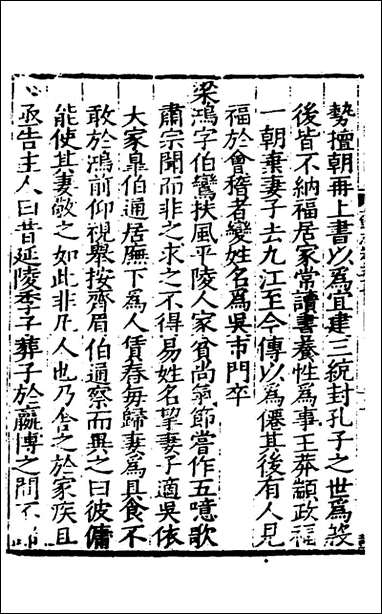 勢擅朝再上書以爲宜建三統封孔子之世爲殷
後皆不納福居家常讀書養性爲事王莽顓政福
一朝棄妻子去九江至今傳以爲僊其後有人見
福於會稽者變姓名爲吳市門卒
梁鴻字伯鸞扶風平陵人家貧尚氣節嘗作五噫歌
肅宗聞而非之求之不得易姓名挈妻子適吳依
大家臯伯通居廡下爲人賃舂每歸妻爲具食不
敢於鴻前仰視舉按齊眉伯通察而異之曰彼傭
能使其妻敬之如此非凡人也乃舍之於家疾且
亟告主人曰昔延陵季子葬子於嬴博之間不